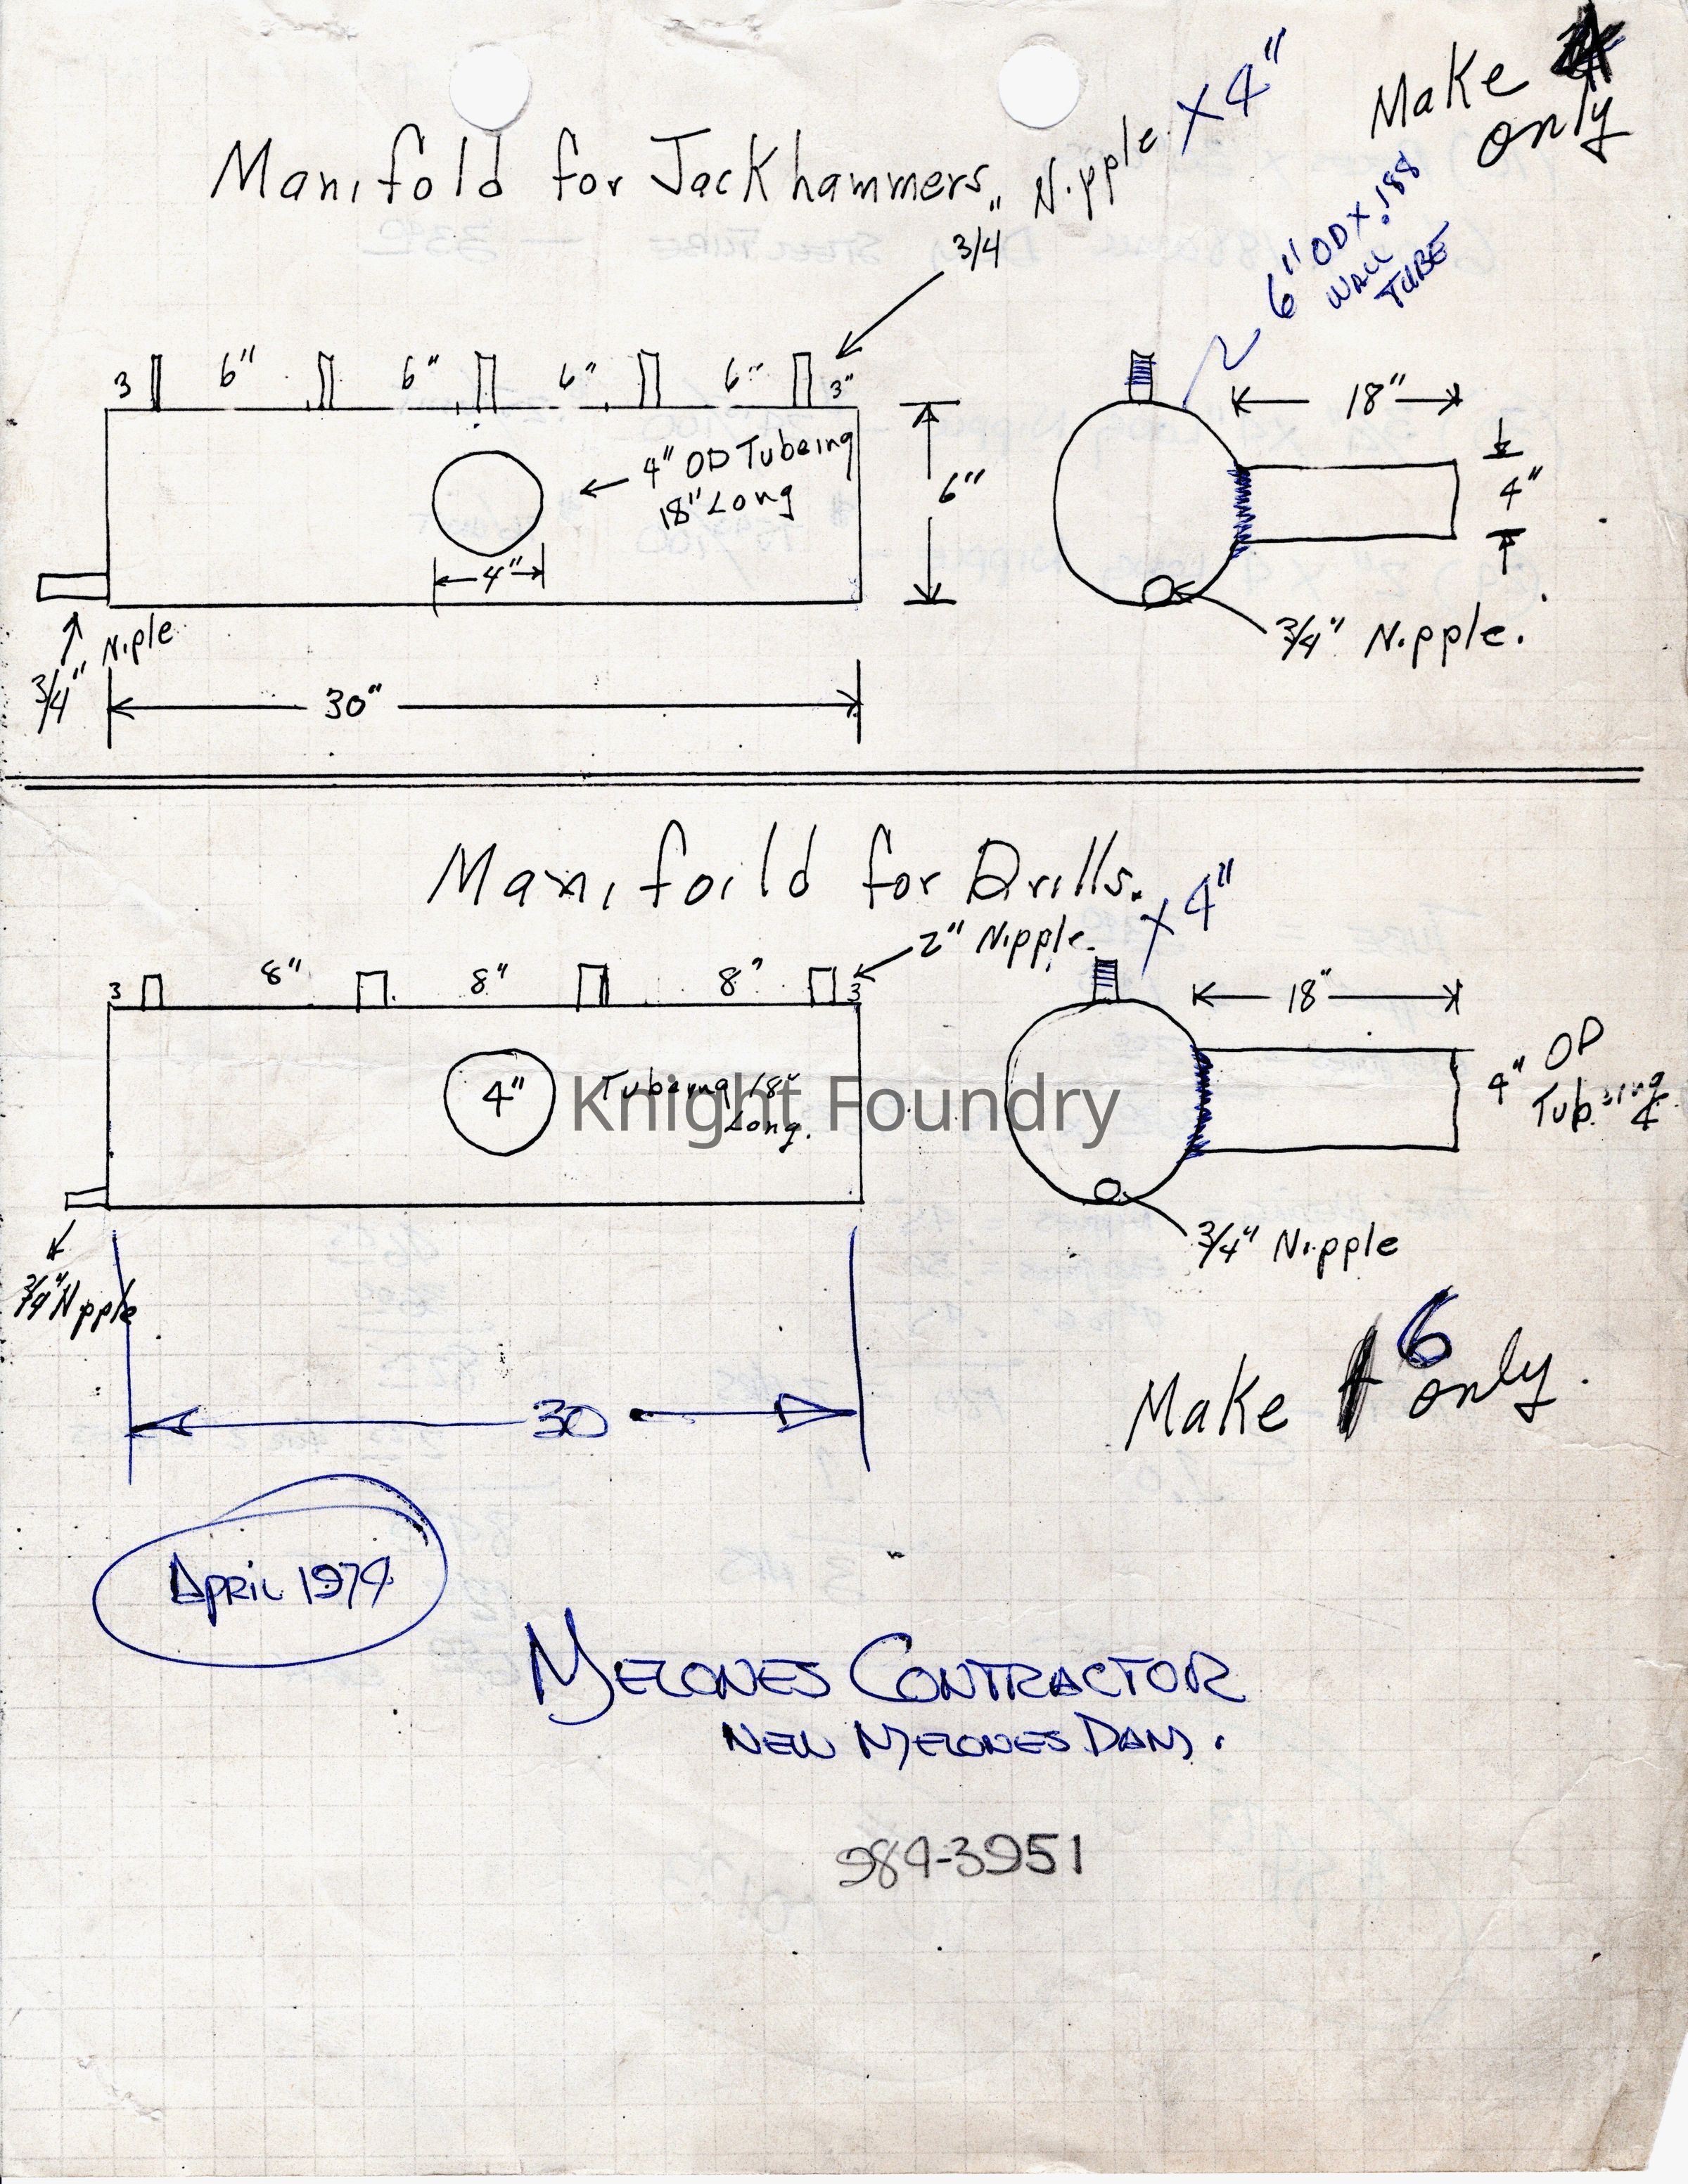 Make 4 only
Manifold for Jackhammers
3/4" Nipple x 4"
6" OD x .188
WALL
TUBE
3 6" 6" 6" 6" 3"
18"
4" OD Tubeing
18" Long
6"
4"
4"
3/4" Niple
3/4" Nipple.
30"
Manifoild for Drills.
2" Nipple. x 4"
3 8" 8" 8" 3
18"
4" Tubeing 18" Long.
4" OD
Tubing
Knight Foundry
3/4" Nipple
3/4" Nipple
Make 6 only.
30
APRIL 1974
MELONES CONTRACTOR
NEW MELONES DAM.
984-3951